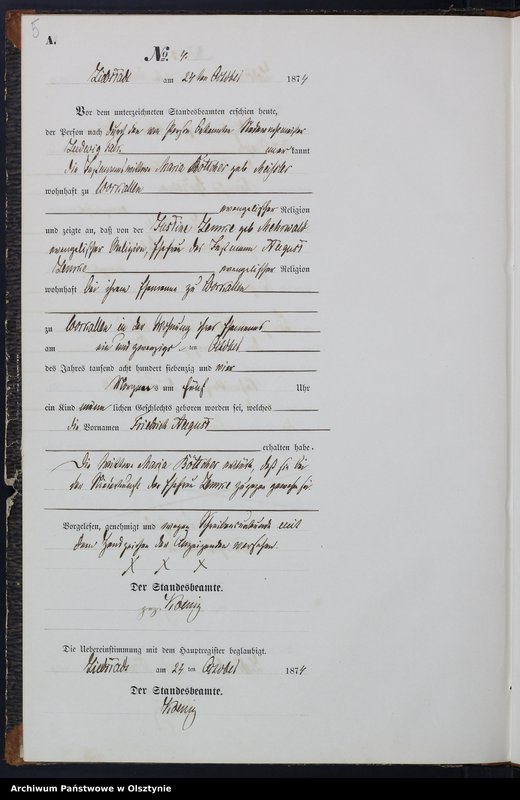 5
A.
No. 4.
Liebstadt am 24 ten October 1874
Vor dem unterzeichneten Standesbeamten erschien heute,
der Person nach durch den von Person bekannten
Ludwig kannt
die Maria Böttcher geb.
wohnhaft zu Worlallen
evangelischer Religion
und zeigte an, daß von der Justine geb. Mehrwald
evangelischer Religion, Ehefrau des August
evangelischer Religion
wohnhaft bei ihrem Ehemanne zu Worlallen
zu Worlallen in der Wohnung ihres Ehemannes
am ein und zwanzigsten October
des Jahres tausend acht hundert siebenzig und vier
Morgens um fünf Uhr
ein Kind männlichen Geschlechts geboren worden sei, welches
die Vornamen Friedrich August
erhalten habe.
Die Wittwe Maria Böttcher erklärt, daß sie bei
der Niederkunft der Ehefrau zugegen gewesen sei.
Vorgelesen, genehmigt und wegen Schreibensunkunde mit
dem Handzeichen der Anzeigenden versehen.
X X X
Der Standesbeamte.
gez. Koenig
Die Uebereinstimmung mit dem Hauptregister beglaubigt.
Liebstadt am 24 ten October 1874
Der Standesbeamte.
Koenig
Archiwum Państwowe w Olsztynie